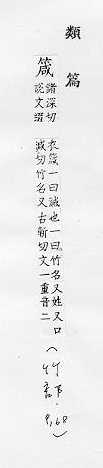 類篇
箴
諸深切
說文綴
衣箴一曰誡也一曰竹名又姓又口
減切竹名又古斬切文一重音二
(竹部,